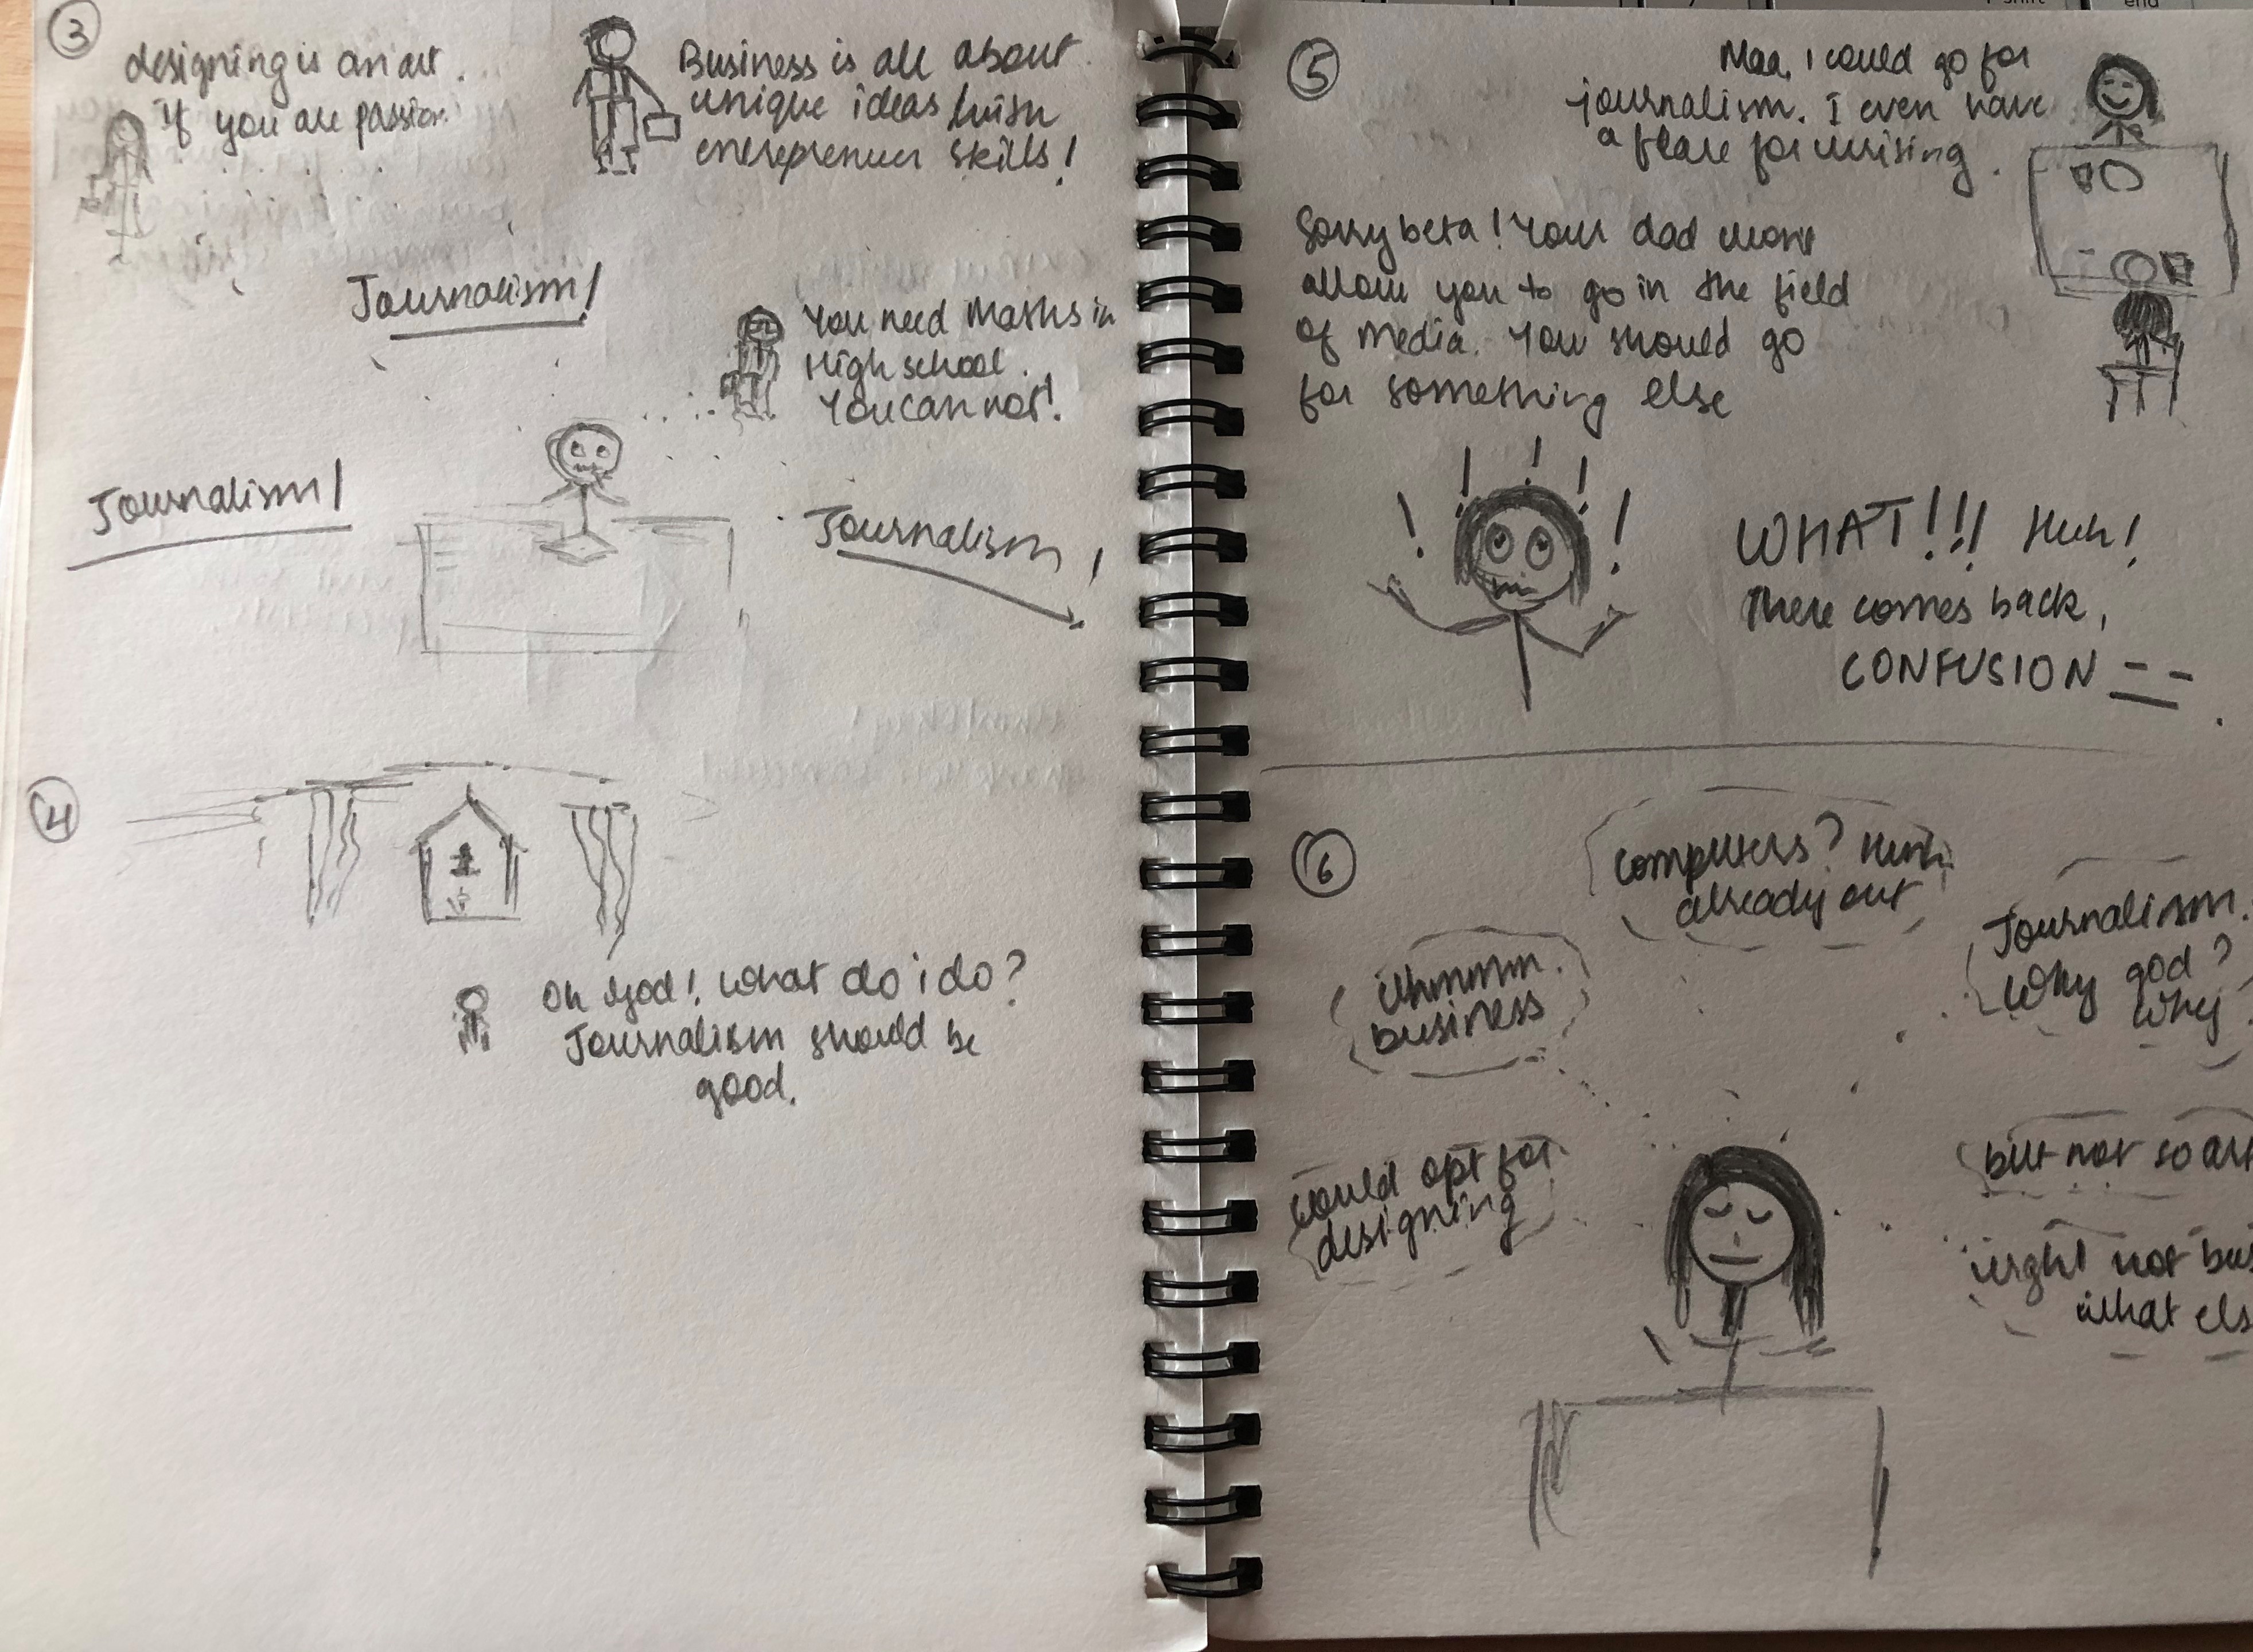 3
designing is an art.
if you are passion
Business is all about
unique ideas with
enterpreneur skills!
Journalism!
You need Maths in
High school.
You can not!
Journalism!
Journalism!
4
Oh God! What do i do?
Journalism should be
good.
5
Maa, i could go for
journalism. I even have
a flare for writing.
Sorry beta! Your dad wont
allow you to go in the field
of Media. You should go
for something else
WHAT!!! Huh!
There comes back,
CONFUSION
6
computers? Huh.
already out
Journalism.
Why god?
Why
Uhmmm.
business
could opt for
designing
but not so art
urgh! not bus
what els
shift
end